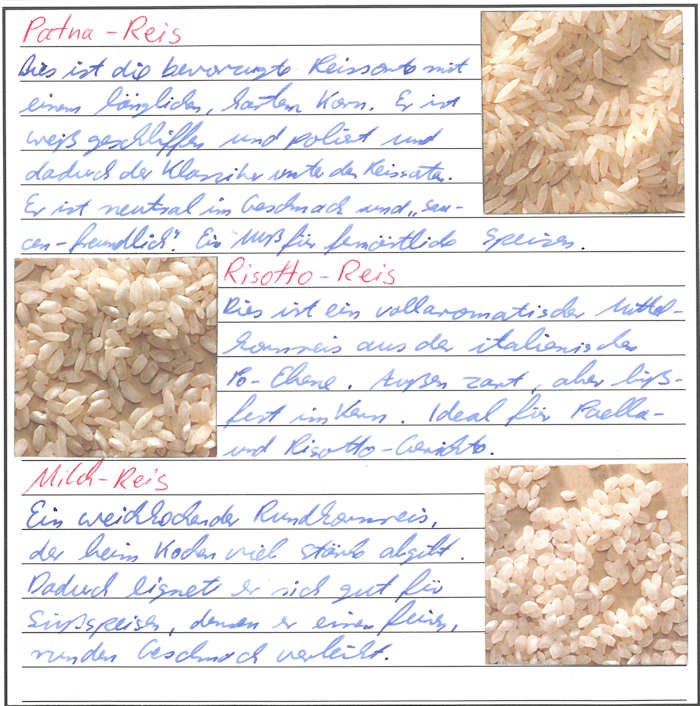 Patna-Reis
Dies ist die bevorzugte Reissorte mit
einem länglichen, harten Korn. Er ist
weiß geschliffen und poliert und
dadurch der Klassiker unter den Reissorten.
Er ist neutral im Geschmack und „sau-
cen-freundlich“. Ein Muß für fernöstliche Speisen.
Risotto-Reis
Dies ist ein vollaromatischer Mittel-
kornreis aus der italienischen
Po-Ebene. Außen zart, aber biß-
fest im Kern. Ideal für Paella-
und Risotto-Gerichte.
Milch-Reis
Ein weichkochender Rundkornreis,
der beim Kochen viel Stärke abgibt.
Dadurch eignet er sich gut für
Süßspeisen, denen er einen feinen,
runden Geschmack verleiht.